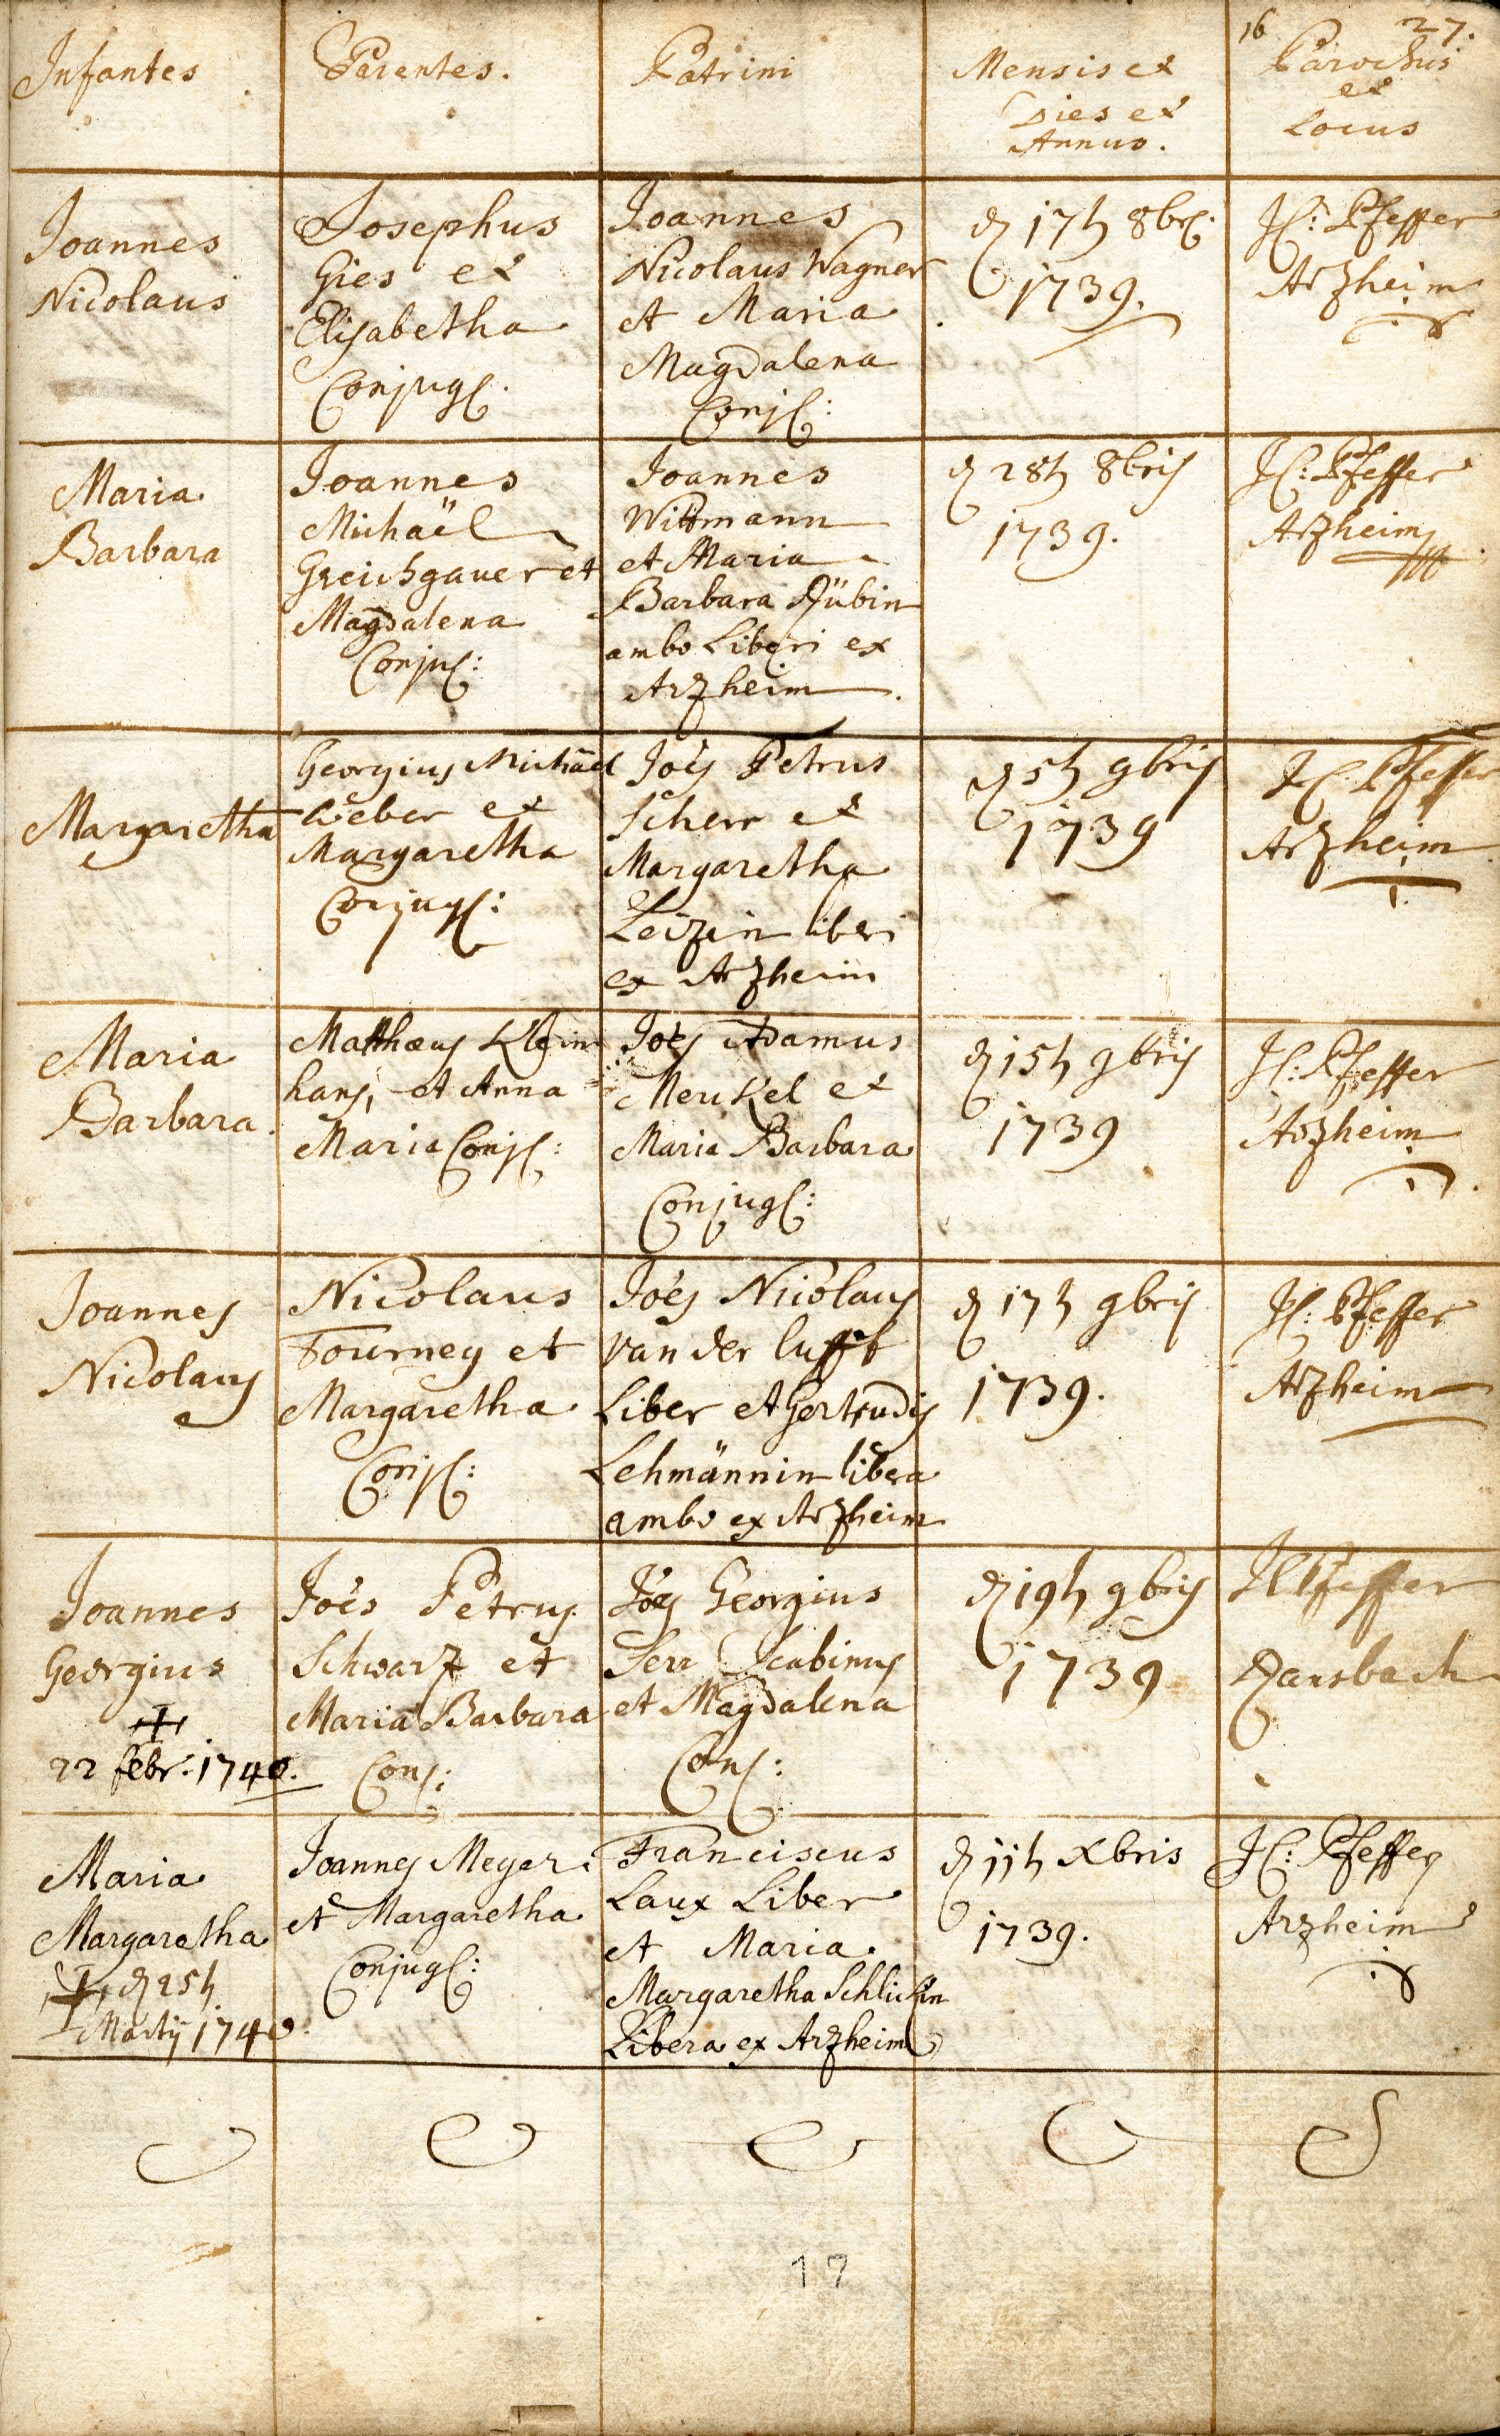 16 27.
Infantes
Parentes.
Patrini
Mensis et
Dies et
Annus.
Parochus
et
Locus
Joannes
Nicolaus
Josephus
Gies et
Elisabetha
Conjug:
Joannes
Nicolaus Wagner
et Maria
Magdalena
Conj:
d 17t 8br:
1739.
J: Pfeffer
Arzheim
Maria
Barbara
Joannes
Michaël
Greichgauer et
Magdalena
Conju:
Joannes
Wittmann
et Maria
Barbara Rübin
ambo Liberi ex
Arzheim.
d 28t 8bris
1739.
J: Pfeffer
Arzheim
Margaretha
Georgius Michäel
Weber et
Margaretha
Conjug:
Joës Petrus
Scherr et
Margaretha
Leizin liberi
ex Arzheim
d 5t 9bris
1739
J Pfeffer
Arzheim
Maria
Barbara.
Matthæus Klein
hans, et Anna
Maria Conj:
Joës Adamus
Merckel et
Maria Barbara
Conjug:
d 15t 9bris
1739
J: Pfeffer
Arzheim
Joannes
Nicolaus
Nicolaus
Tourney et
Margaretha
Conj:
Joës Nicolaus
van der lufft
Liber et Gertrudis
Lehmännin libera
ambo ex Arzheim
d 17t 9bris
1739.
J: Pfeffer
Arzheim
Joannes
Georgius
22 febr: 1740.
Joës Petrus
Schwarz et
Maria Barbara
Con:
Joës Georgius
Serr Scabinus
et Magdalena
Con:
d 19t 9bris
1739
J Pfeffer
Ransbach
Maria
Margaretha
d 25t
Martij 1740.
Joannes Meyer
et Margaretha
Conjug:
Franciscus
Laux Liber
et Maria
Margaretha Schlickin
Libera ex Arzheim
d 11t Xbris
1739.
J: Pfeffer
Arzheim
17